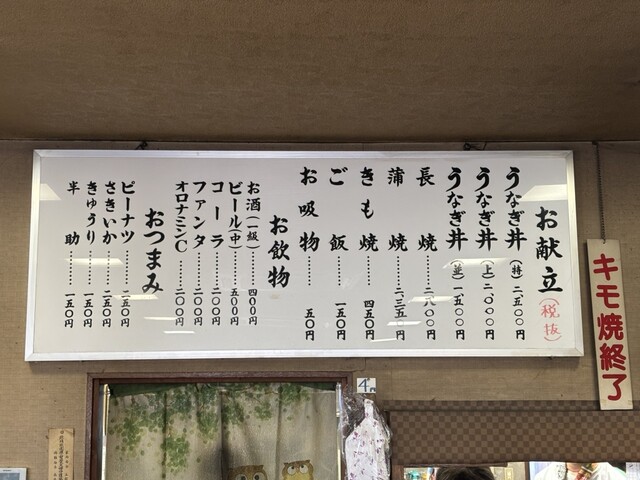 お献立(税抜)
うなぎ丼(特)二、五〇〇円
うなぎ丼(上)二、〇〇〇円
うなぎ丼(並)一、五〇〇円
長焼………二、八〇〇円
蒲焼………二、三五〇円
きも焼………四五〇円
ご飯………一五〇円
お吸物………五〇円
お飲物
お酒(一級)………四〇〇円
ビール(中)………五〇〇円
コーラ………二〇〇円
ファンタ………二〇〇円
オロナミンC………二〇〇円
おつまみ
ピーナツ………二五〇円
さきいか………二五〇円
きゅうり………一五〇円
半助………一五〇円
キモ焼終了
4